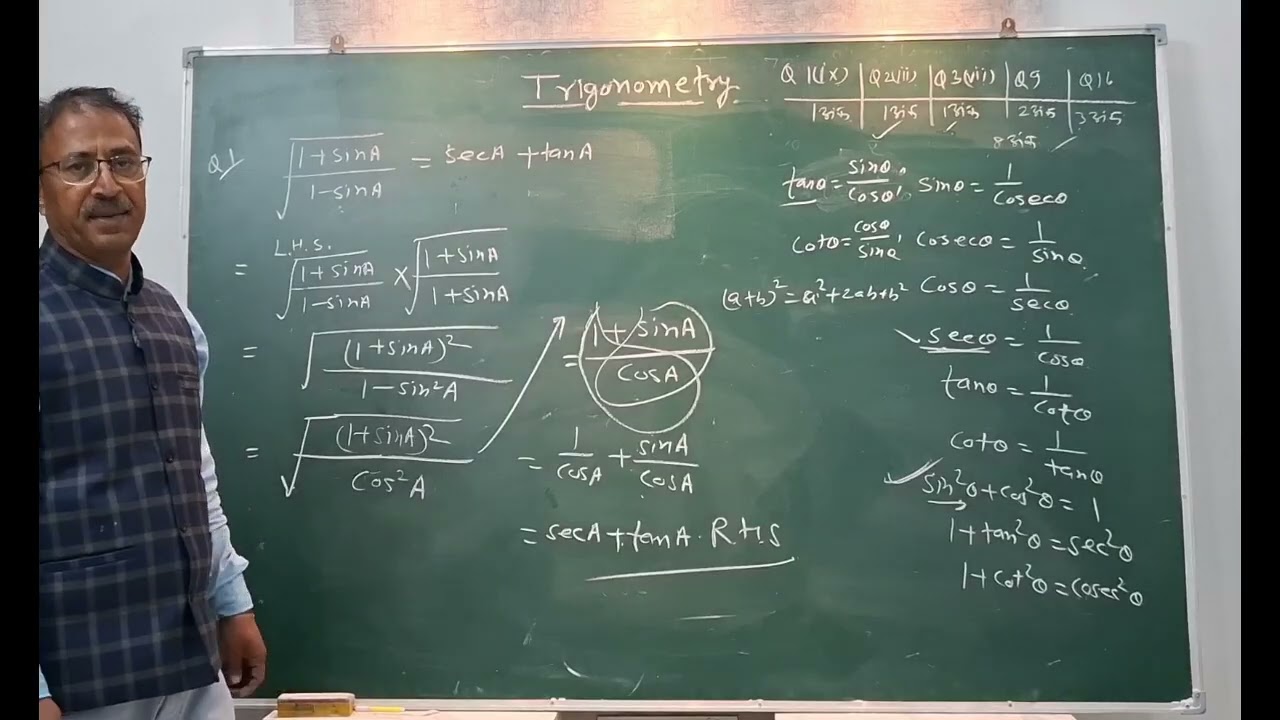 Trigonometry
Q 1(ix) | Q2(ii) | Q3(vii) | Q9 | Q16
1अंक | 1अंक | 1अंक | 2अंक | 3अंक
8अंक
Q1 √((1+sinA)/(1-sinA)) = secA + tanA
L.H.S.
= √((1+sinA)/(1-sinA)) × √((1+sinA)/(1+sinA))
= √((1+sinA)²/(1-sin²A))
= √((1+sinA)²/Cos²A)
= (1+sinA)/CosA
= 1/CosA + sinA/CosA
= secA + tanA. R.H.S
tanθ = sinθ/Cosθ, Sinθ = 1/Cosecθ
Cotθ = Cosθ/sinθ, Cosecθ = 1/sinθ
(a+b)² = a²+2ab+b² Cosθ = 1/secθ
secθ = 1/Cosθ
tanθ = 1/Cotθ
Cotθ = 1/tanθ
Sin²θ+Cos²θ = 1
1+tan²θ = sec²θ
1+Cot²θ = Cosec²θ